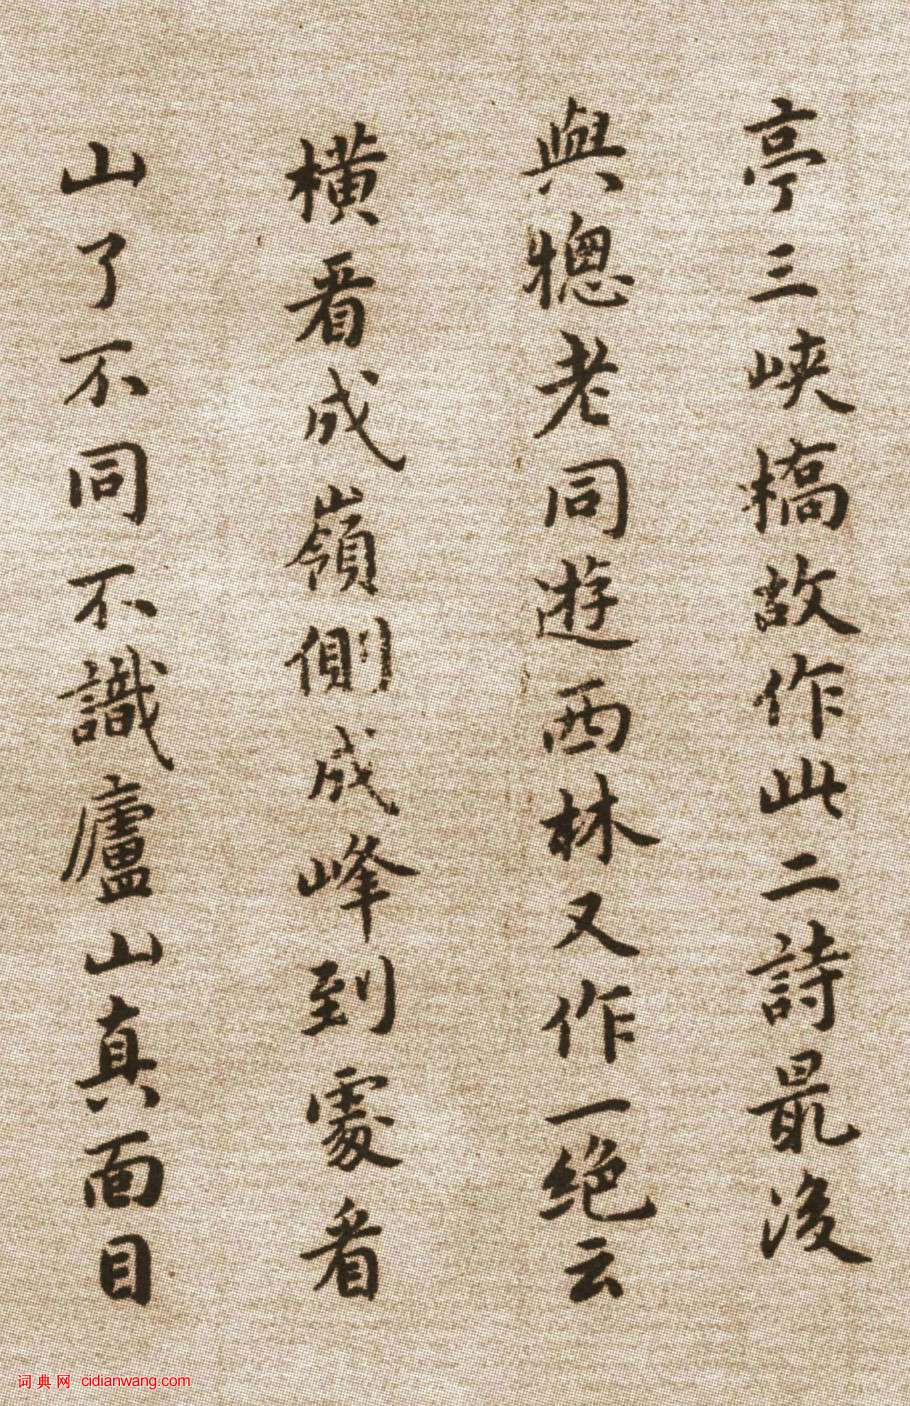 亭三峽橋故作此二詩最後
與憁老同遊西林又作一絕云
橫看成嶺側成峰到處看
山了不同不識廬山真面目
词典网 cidianwang.com